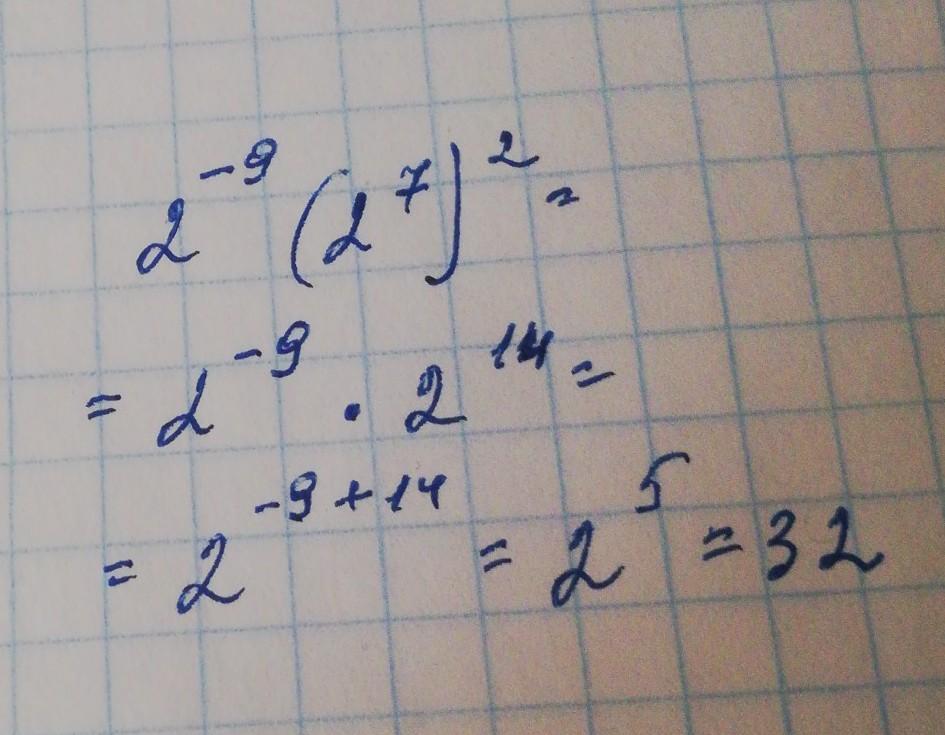 2⁻⁹ (2⁷)² =
= 2⁻⁹ · 2¹⁴ =
= 2⁻⁹⁺¹⁴ = 2⁵ = 32